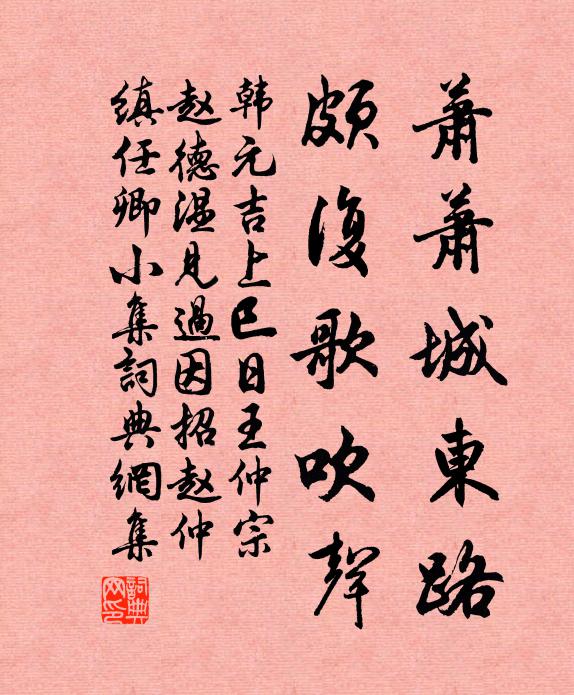 蕭蕭城東路
頗復歌吹聲
韩元吉上巳日王仲宗
赵德温見過因招赵仲
缜任卿小集詞典網集
詞典网印